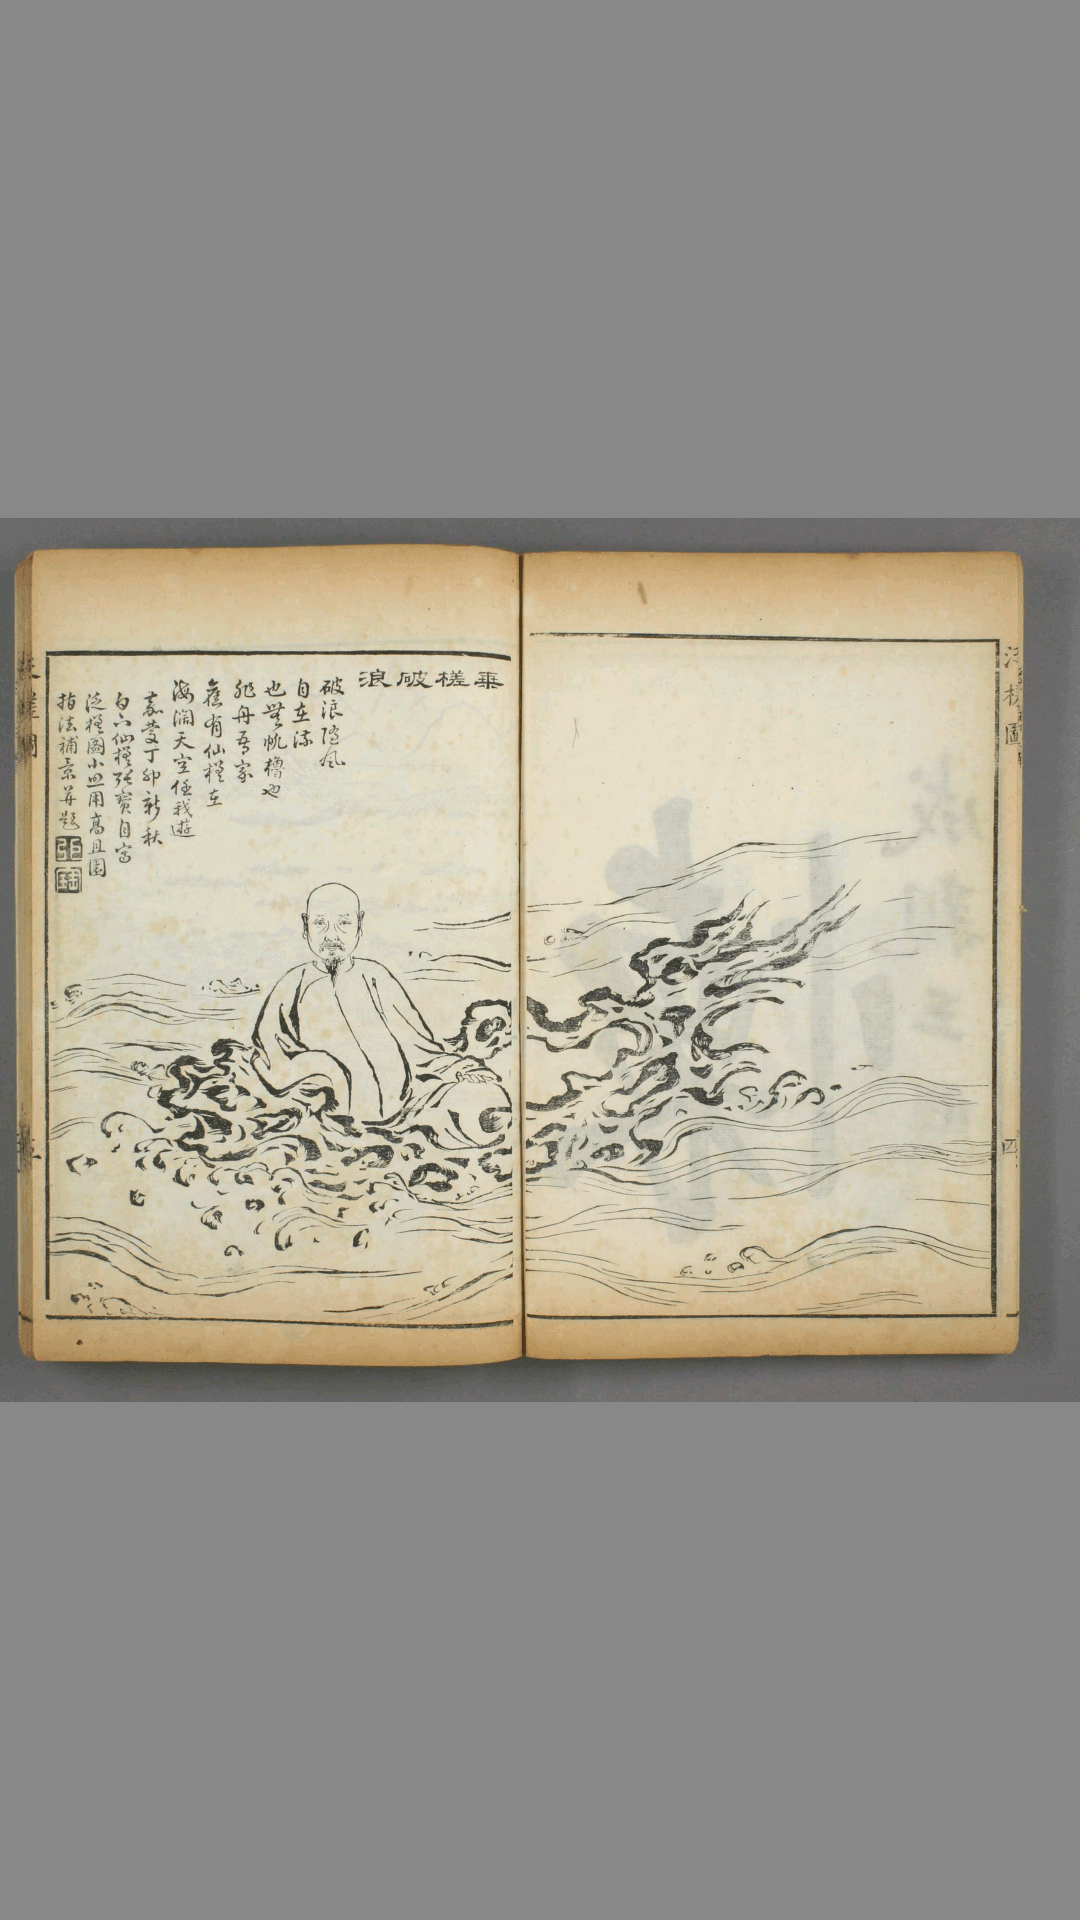 乘槎破浪
破浪隨風
自在流
也無帆櫓也
非舟吾家
舊有仙槎在
海濶天空任我遊
嘉慶丁卯新秋
白下仙槎張寶自寫
泛槎圖小照用高且園
指法補景并題
泛槎圖
四